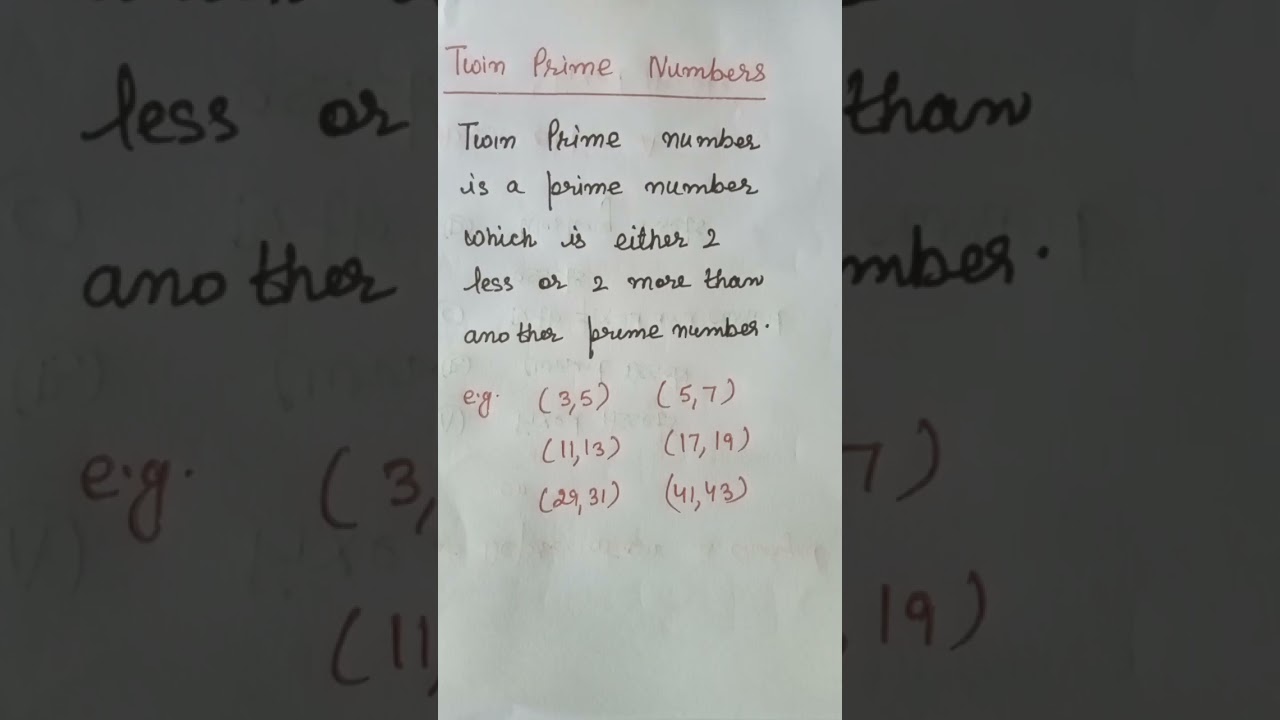 Twin Prime Numbers
Twin Prime number
is a prime number
which is either 2
less or 2 more than
another prime number.
e.g. (3,5) (5,7)
(11,13) (17,19)
(29,31) (41,43)